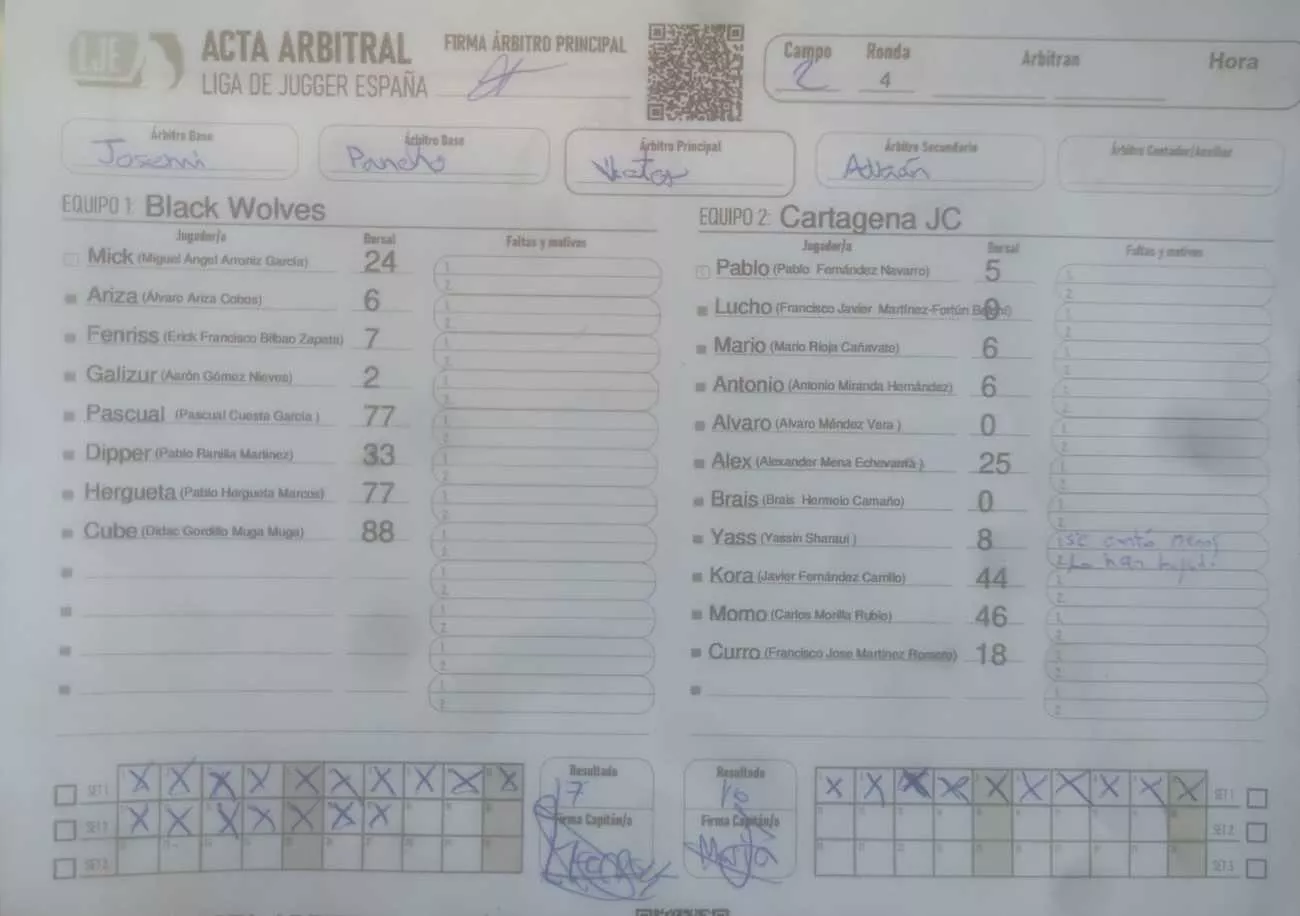 LJE
ACTA ARBITRAL
LIGA DE JUGGER ESPAÑA
FIRMA ÁRBITRO PRINCIPAL
Campo Ronda Arbitran Hora
2 4
Árbitro Base Árbitro Base Árbitro Principal Árbitro Secundario Árbitro Contador/Auxiliar
Josemi Pancho Víctor Adrián
EQUIPO 1: Black Wolves
Jugador/a Dorsal Faltas y motivos
Mick (Miguel Ángel Arroniz García) 24 1. 2.
Ariza (Álvaro Ariza Cobos) 6 1. 2.
Fenriss (Erick Francisco Bilbao Zapata) 7 1. 2.
Galizur (Aarón Gómez Nieves) 2 1. 2.
Pascual (Pascual Cuesta García ) 77 1. 2.
Dipper (Pablo Ranilla Martínez) 33 1. 2.
Hergueta (Pablo Hergueta Marcos) 77 1. 2.
Cube (Didac Gordillo Muga Muga) 88 1. 2.
EQUIPO 2: Cartagena JC
Jugador/a Dorsal Faltas y motivos
Pablo (Pablo Fernández Navarro) 5 1. 2.
Lucho (Francisco Javier Martínez-Fortún 0 1. 2.
Mario (Mario Rioja Cañavate) 6 1. 2.
Antonio (Antonio Miranda Hernández) 6 1. 2.
Alvaro (Alvaro Méndez Vera ) 0 1. 2.
Alex (Alexander Mena Echevarría ) 25 1. 2.
Brais (Brais Hermelo Camaño) 0 1. 2.
Yass (Yassin Sharaui ) 8 se contó menos
2. La han
Kora (Javier Fernández Carrillo) 44 1. 2.
Momo (Carlos Morilla Rubio) 46 1. 2.
Curro (Francisco Jose Martínez Romero) 18 1. 2.
SET 1 X X X X X X X X X X
SET 2 X X X X X X X
SET 3
Resultado
17
Firma Capitán/a
Resultado
10
Firma Capitán/a
X X X X X X X X X X SET 1
SET 2
SET 3